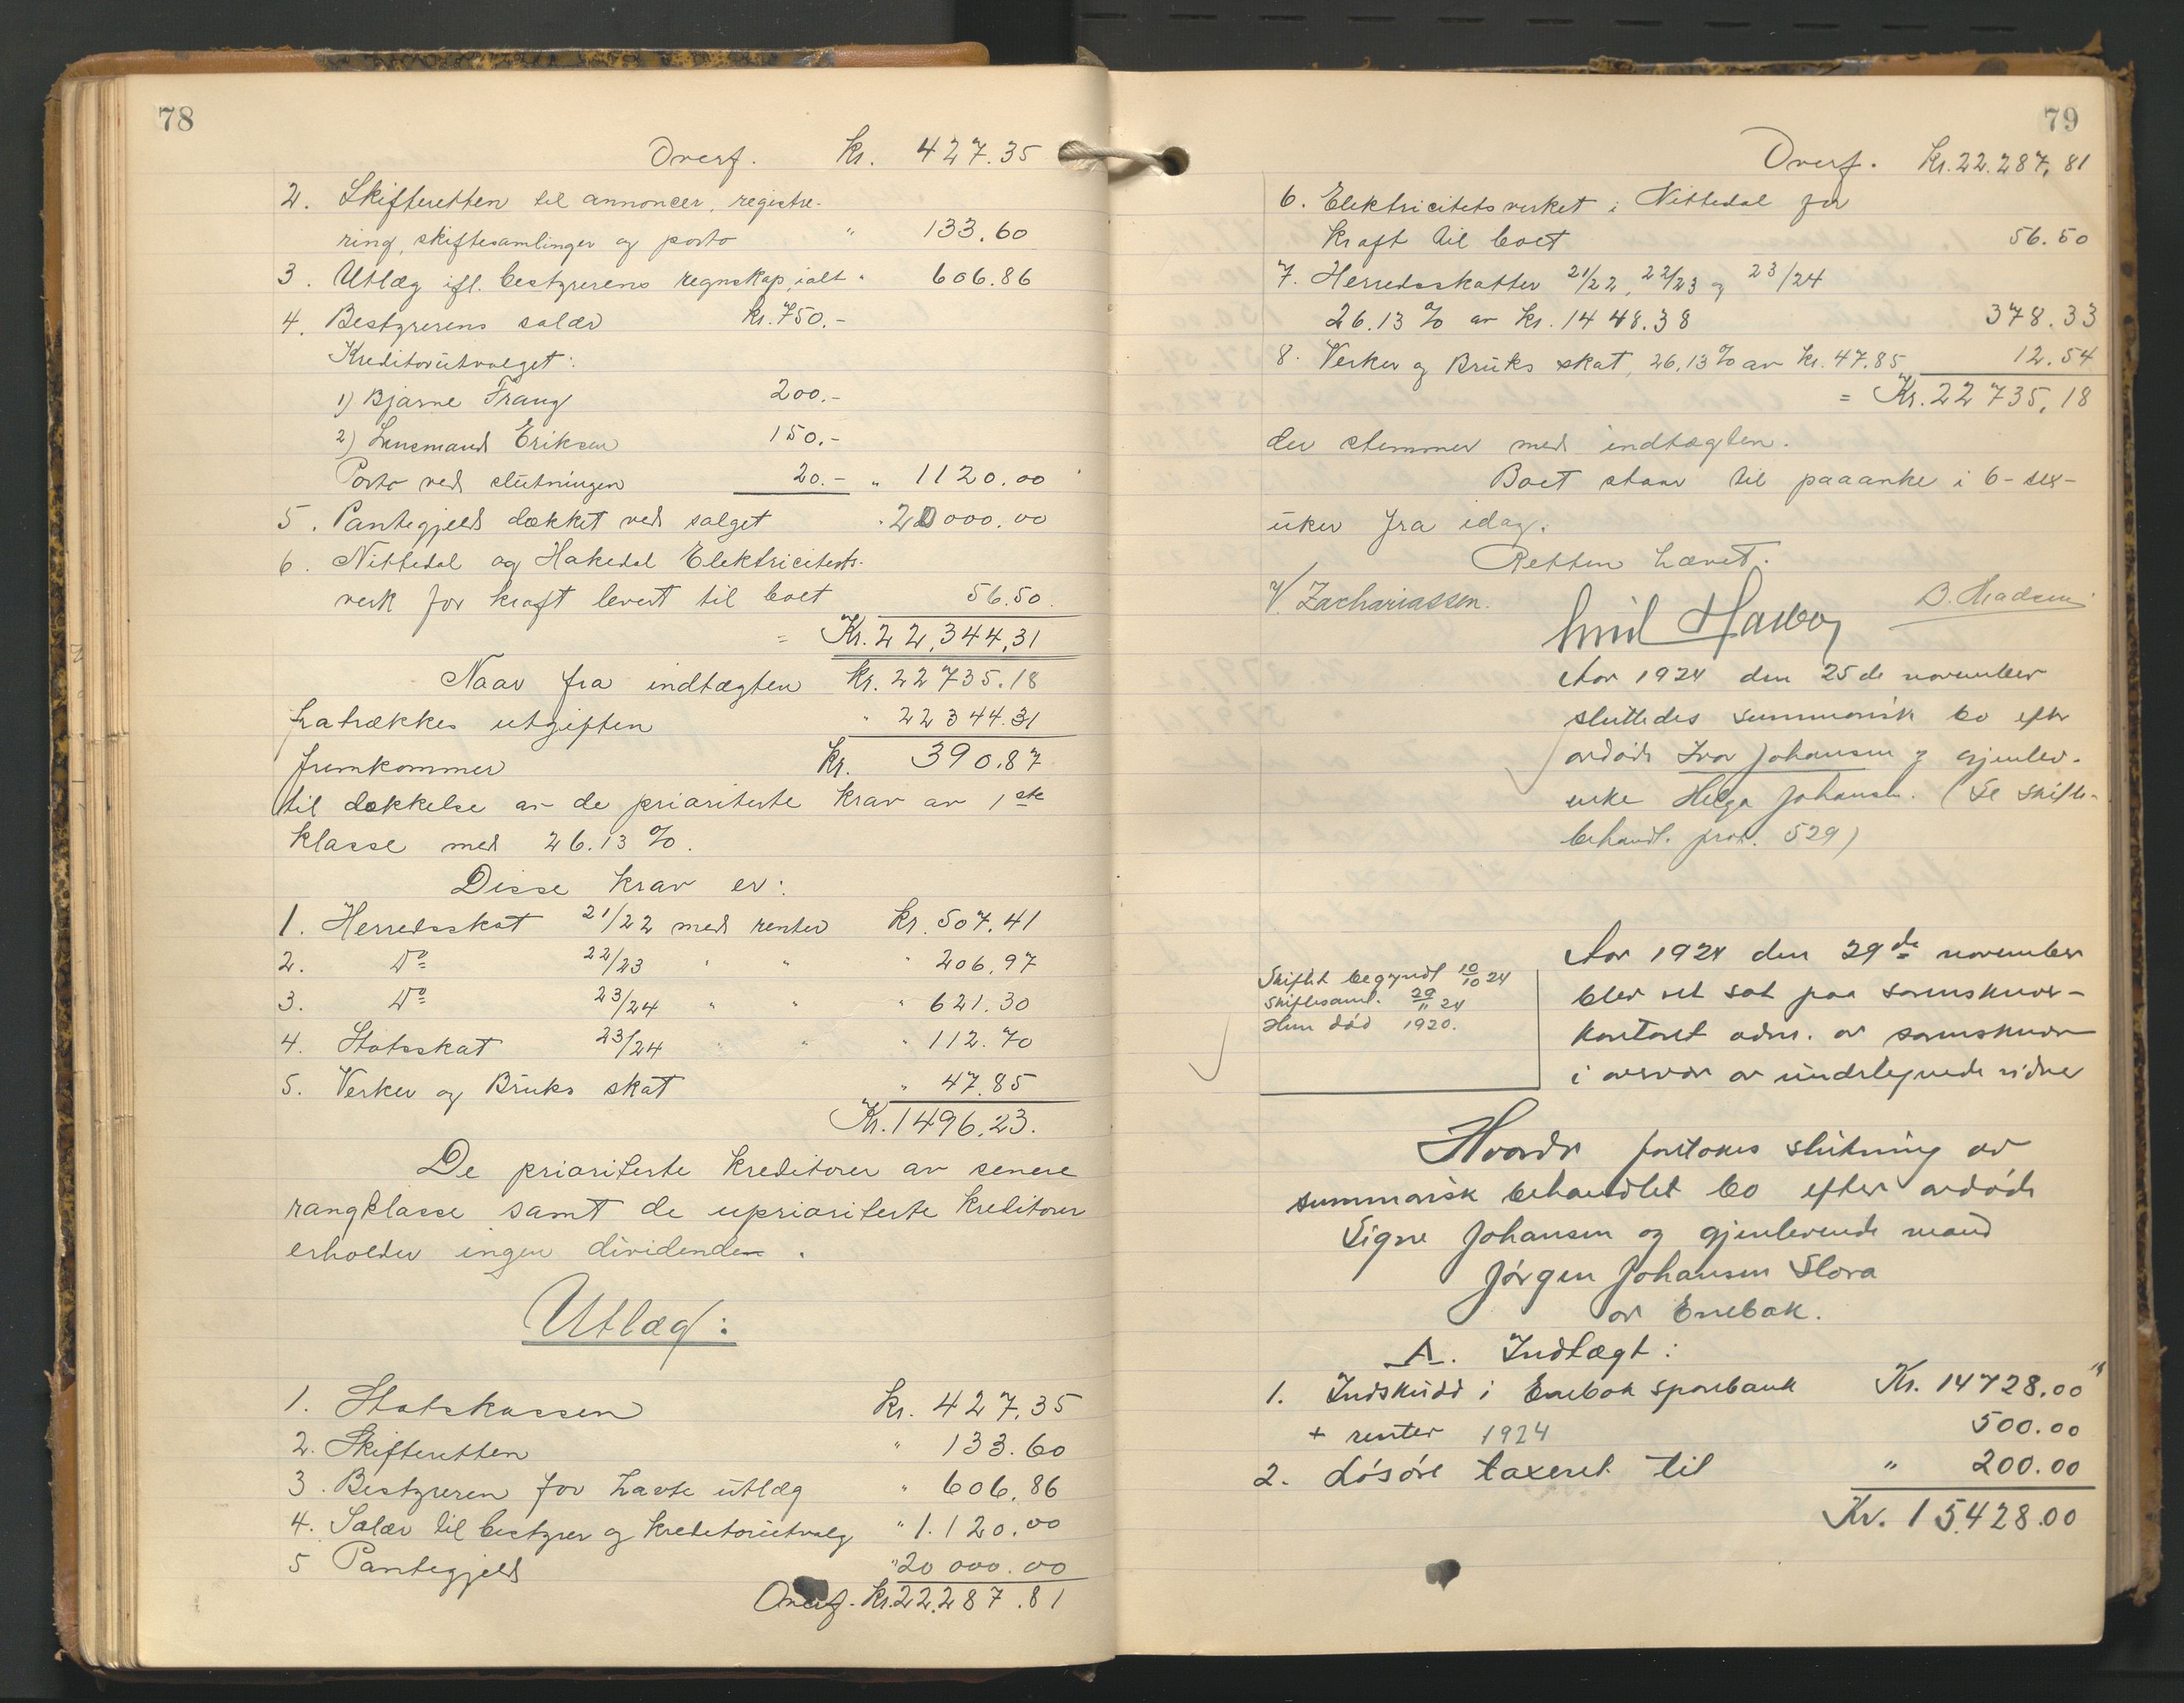 78
Overf. kr. 427.35
2. Skifteretten til annoncer, registre-
ring, skiftesamlinger og porto " 133.60
3. Utlæg ifl. bestyrerens regnskap, ialt " 606.86
4. Bestyrerens salær kr. 750.-
Kreditorutvalget:
1) Bjarne Frang 200.-
2) Lensmand Eriksen 150.-
Porto ved slutningen 20.- " 1120.00
5. Pantegjeld dækket ved salget " 20000.00
6. Nittedal og Hakedal Elektricitets-
verk for kraft levert til boet 56.50
= Kr. 22,344,31
Naar fra indtægten kr. 22735.18
fratrækkes utgiften " 22344.31
fremkommer Kr. 390.87
til dækkelse av de prioriterte krav av 1ste
klasse med 26.13 %.
Disse krav er:
1. Herredsskat 21/22 med renter kr. 507.41
2. Do 22/23 " " " 206.97
3. Do 23/24 " " " 621.30
4. Statsskat 23/24 " " " 112.70
5. Verker og Bruks skat " 47.85
Kr. 1496.23.
De prioriterte kreditorer av senere
rangklasse samt de uprioriterte kreditorer
erholder ingen dividende.
Utlæg:
1. Statskassen kr. 427.35
2. Skifteretten " 133.60
3. Bestyreren for havte utlæg " 606.86
4. Salær til bestyrer og kreditorutvalg " 1.120.00
5 Pantegjeld " 20 000.00
Overf. kr. 22.287.81
79
Overf. kr. 22.287,81
6. Elektricitetsverket i Nittedal for
kraft til boet 56.50
7. Herredsskatter 21/22, 22/23 og 23/24
26.13 % av kr. 1448.38 378.33
8. Verker og Bruks skat, 26,13 % av kr. 47.85 12.54
= Kr. 22735,18
der stemmer med indtægten.
Boet staar til paaanke i 6-sex-
uker fra idag.
Retten hævet.
V. Zachariassen. Emil B. Madsen
Aar 1924 den 25de november
sluttedes summarisk bo efter
avdøde Ivar Johansen og gjenlev.
enke Helga Johansen. (Se Skifte-
behandl. prot. 529)
Skiftet begyndt 10/10 24
Skiftesaml. 29/11 24
Hun død 1920.
Aar 1924 den 29de november
blev ret sat paa sorenskriver-
kontoret adm. av sorenskriver
i overvær av undertegnede vidner
Hvorda foretokes slutning av
summarisk behandlet bo efter avdøde
Signe Johansen og gjenlevende mand
Jørgen Johansen Slora
av Enebak.
A. Indtægt:
1. Indskudd i Enebak sparebank Kr. 14728.00
+ renter 1924 500.00
2. Løsøre taxeret til " 200.00
Kr. 15.428.00